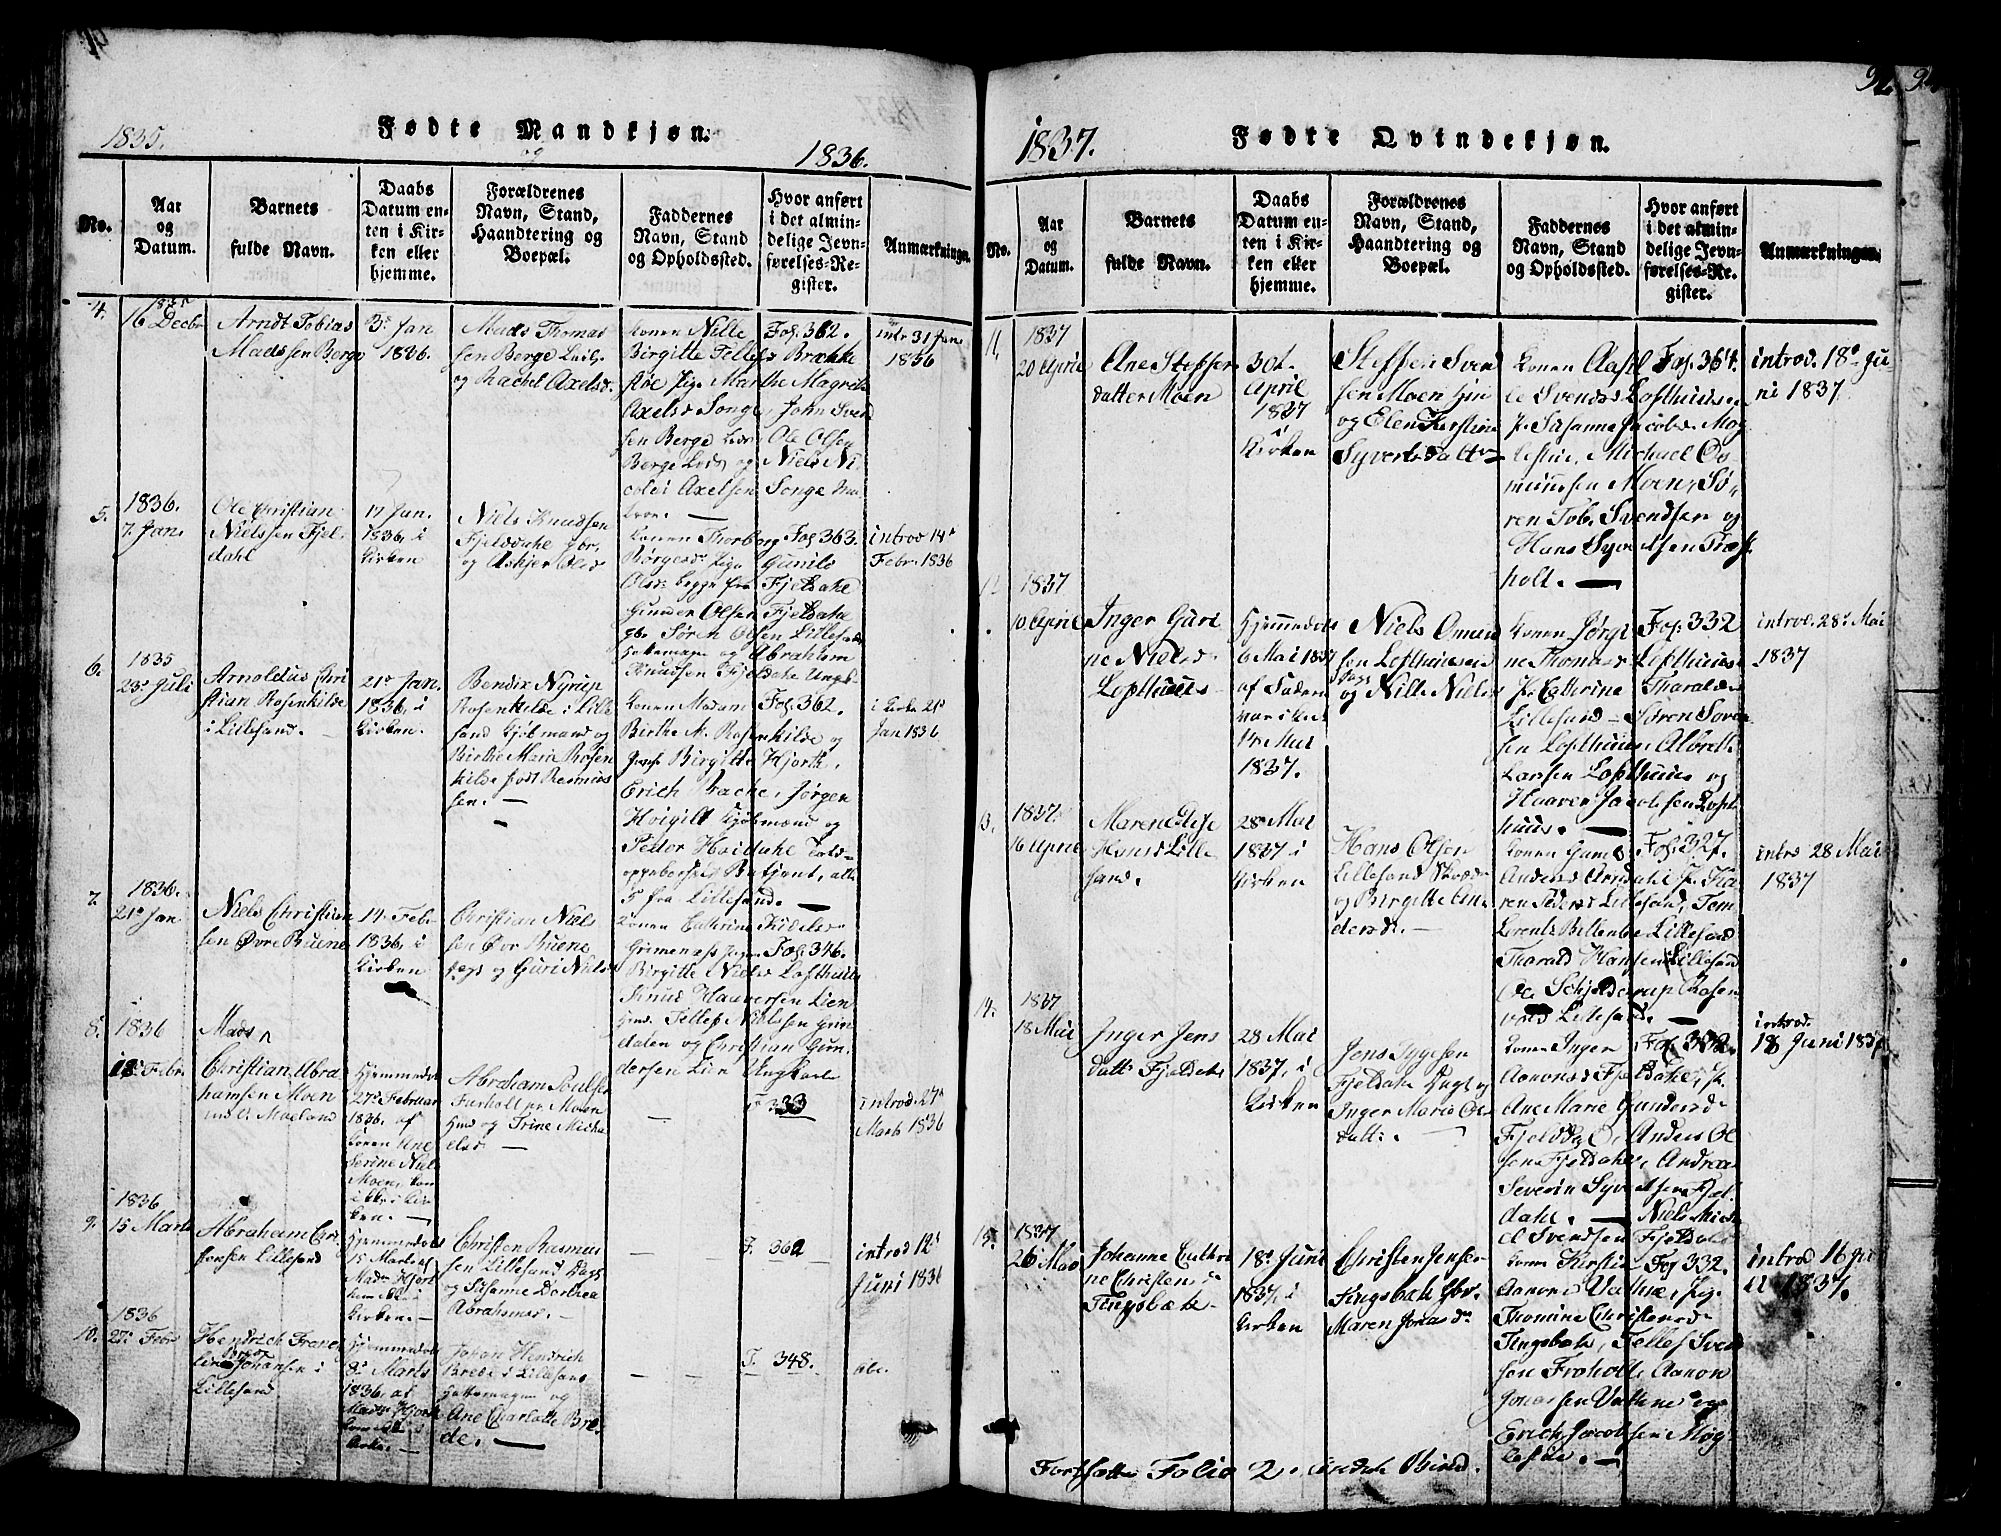 1835.
Fødte Mandkjøn.
og
1836.
No.
Aar
og
Datum.
Barnets
fulde Navn.
Daabs
Datum en-
ten i Kir-
ken eller
hjemme.
Forældrenes
Navn, Stand,
Haandtering og
Boepæl.
Faddernes
Navn, Stand
og Opholdssted.
Hvor anført
i det almin-
delige Jevn-
førelses-Re-
gister.
Anmærkninger.
4.
16 Decbr
Arndt Tobias
Madssen Berge
3d Jan
1836.
Mads Thomas
sen Berge
og Rachel Axelsd.
Konen Nille
Birgitte Tellefsd Brække
støe Pige Marthe Magrete
Axelsd Songe, John Svend
sen Berge Ole Olsen
Berge og Niels Ni
colai Axelsen Songe
Fol. 362.
intr 31 Jan
1836
5.
1836.
7. Jan.
Ole Christian
Nielssen Fjel-
dahl
17 Jan.
1836. i
Kirken
Niels Knudsen
Fjeldahl
og Askjer Olsd
Konen Thorborg
Børgesd. Pige Gunild
Olsd. begge fra Fjeldahl
Gunder Olsen Fjeldahl
gb. Søren Olsen Lillesand
og Abraham
Knudsen Fjeldahl Ungk.
Fol 363.
introd 14d
Febr. 1836
6.
1835
23d Juli
Arnoldus Chri
stian Rosenkilde
i Lillesand.
21d Jan.
1836. i
Kirken.
Bendix Nyrup
Rosenkilde i Lille
sand Kjøbmand og
Birthe Marie Rosen
kilde født Rasmus
sen.
Konen Madam
Birthe M. Rosenkilde og
Birgitte Hjorth,
Erich Bache, Jørgen
Hvigilt Kjøbmænd og
Peter Heidahl Told-
oppebørsels Betjent, alle
5 fra Lillesand.
Fol. 362.
i Kirke 21d
Jan 1836
7.
1836.
21d Jan
Niels Christian
sen Øvre Ruene
14. Febr
1836. i
Kirken
Christian Niels
sen Øvr Ruene
og Guri Nielsd
Konen Cathrine Kidelsd
Grimenæss Pigen
Birgitte Nielsd Lofthuus
Knud Haaversen Lien
Tellef Nielssen Grin
dalen og Christian Gun
dersen Lien Ungkarle
Fol. 346.
8.
1836
18 Febr.
Mads
Christian Abra
hamsen Moen
Moeland
Hjemmedøbt
27d Februar
1836. af
Konen Ane
Serine Niels
Moen, kom
ikke i Kir
ken.
Abraham Poulsen
Furholt pr Moen
og Trine Micha
elsd
F. 333
introd. 27d
Marts 1836
9.
1836
15 Marts
Abraham Chri
stensen Lillesand
Hjemmedøbt
15 Marts af
Madm Hjort
Kirken.
Christen Rasmus
sen Lillesand
og Susanne Dorthea
Abrahmsd.
F. 362
introd 12d
Juni 1836
10.
1836
27d Febr
Hendrich Franc
Johansen i
Lillesand
Hjemmedøbt
8d Marts
1836. af
Madm Hjort
Johan Hendrich
Brede i Lillesand
Hattemager og
Ane Charlotte Bre
de.
F. 348.
1837.
Fødte Qvindekjøn.
92
No.
Aar
og
Datum.
Barnets
fulde Navn.
Daabs
Datum en-
ten i Kir-
ken eller
hjemme.
Forældrenes
Navn, Stand,
Haandtering og
Boepæl.
Faddernes
Navn, Stand
og Opholdssted.
Hvor anført
i det almin-
delige Jevn-
førelses-Re-
gister.
Anmærkninger.
11.
1837
20 April
Ane Steffens
datter Moen
30t
April
1837
i
Kirken
Steffen Svend
sen Moen
og Elen Kirstine
Syvertsdatter
Konen Aasil
le Svendsd Lofthuus
P. Susanne Jacobsd Møg
lestue, Michael Os-
mundsen Moen, Sø-
ren Tob. Svendsen og
Hans Syvertsen Træf
holt.
Fol. 364.
introd. 18d Ju
ni 1837
12
1837
10 April
Inger Guri
ne Nielsd.
Lofthuus
Hjemmedøbt
6 Mai 1837
af Faderen
var i Kirken
14 Mai
1837.
Niels Omund
sen Lofthuus
og Nille Nielsd
Konen Jørgi
ne Thomasd Lofthuus
P. Cathrine Tharaldsd
Lillesand - Søren Soren
sen Lofthuus, Albrett
Larsen Lofthuus og
Haaver Jacobsen Loft
huus.
Fol. 332
introd. 28d Mai
1837
13.
1837.
16 April
Maren Elise
Hansd Lille
sand.
28d Mai
1837 i
Kirken
Hans Olsen
Lillesand
og Birgitte An
dersd.
Konen Gund
Anders Arndahl P. Ka
ren Pedersd Lillesand, Tom
Lorentz Lillesand
Tharald Hansen Lillesand
Ole Schjelderup Rosen
vold Lillesand.
Fol. 327.
introd 28 Mai
1837
14.
1837
18 Mai
Inger Jens
datt. Fjeldahl
28 Mai
1837, i
Kirken
Jens Tygesen
Fjeldahl og
Inger Marie Ols
datt.
Konen Inger
Aanonsd Fjeldahl, P.
Ane Marie Gundersd
Fjeldahl, Anders Ol
sen Fjeldahl, Andreas
Severin Syvertsen Fjel
dahl. Niels Mich
el Svendsen Fjeldahl
introd.
18 Juni 1837
15.
1837
26 Mai
Johanne Cathri
ne Christensd
Tingsbæk
18d Juni
1837. i
Kirken
Christen Jensen
Tingsbæk
Maren Jonasd.
Konen Kirstine
Aanonsd Vathne, Pig.
Thomine Christensd
Tingsbæk, Tellef Svend
sen Froholt, Aanon
Jonassen Vathne og
Erich Jacobsen Møg
lestue.
Fol 332.
introd 16 Ju
li 1837.
Fortsættes Folio 2.